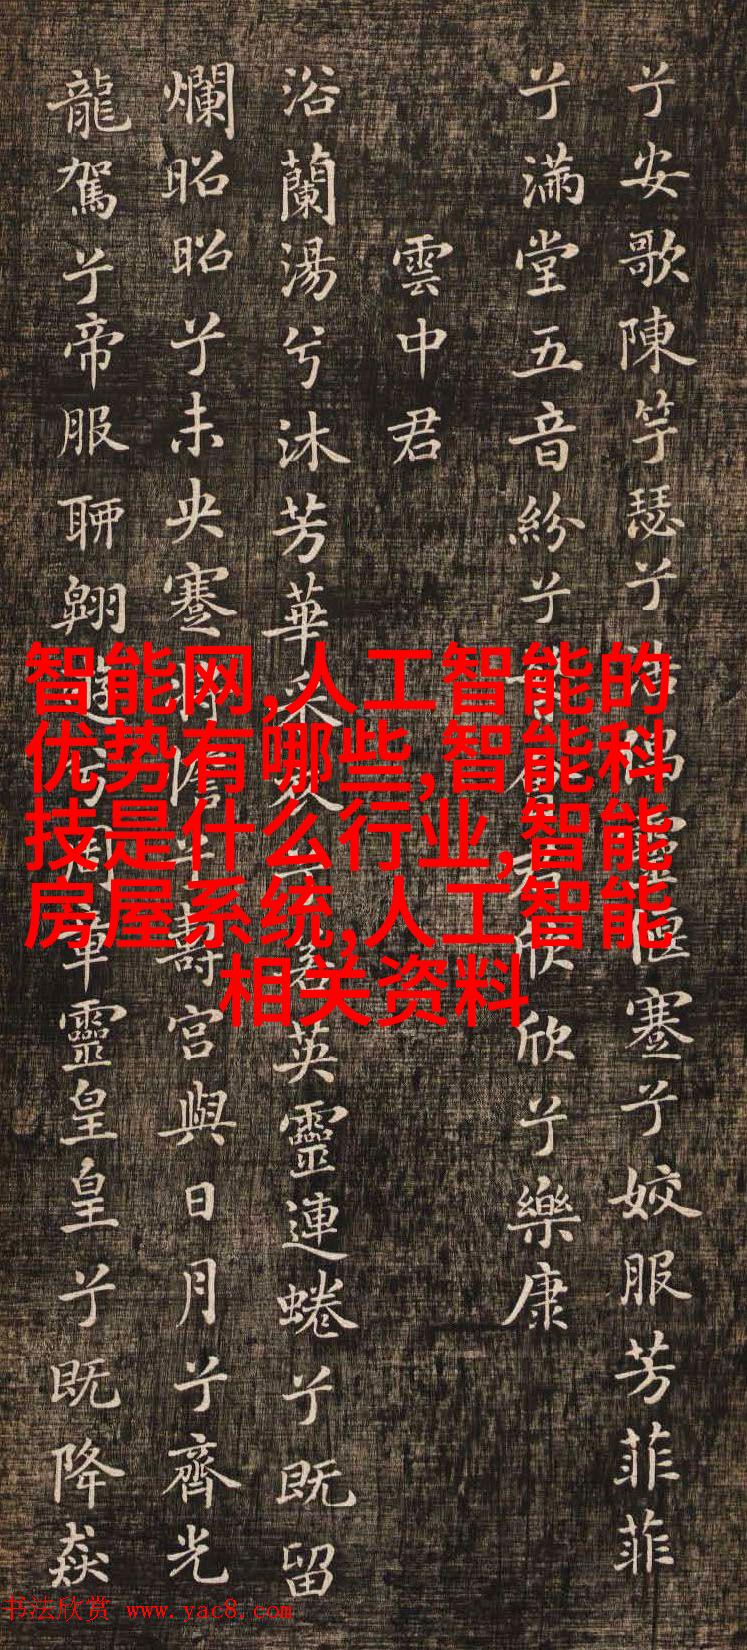 兮安歌陳竽瑟兮浩倡靈偃蹇兮姣服芳菲菲
兮滿堂五音紛兮君欣欣兮樂康
雲中君
浴蘭湯兮沐芳華采衣兮若英靈連蜷兮既留
爛昭昭兮未央蹇將憺兮壽宮與日月兮齊光
龍駕兮帝服聊翱遊兮周章靈皇皇兮既降猋
智能网,人工智能的
优势有哪些,智能科
技是什么行业,智能
房屋系统,人工智能
相关资料
书法欣赏 www.yac8.com